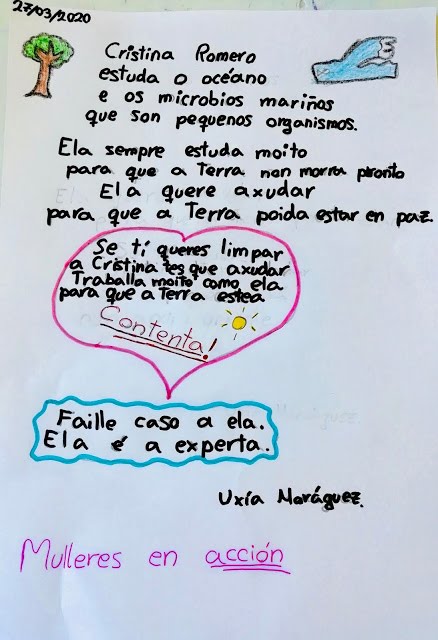 27/03/2020
Cristina Romero
estuda o océano
e os microbios mariños
que son pequenos organismos.
Ela sempre estuda moito
para que a Terra non morra pronto
Ela quere axudar
para que a Terra poida estar en paz.
Se ti queres limpar
a Cristina tes que axudar
Traballa moito como ela
para que a Terra estea
Contenta!
Faille caso a ela.
Ela é a experta.
Uxía Moráguez.
Mulleres en acción